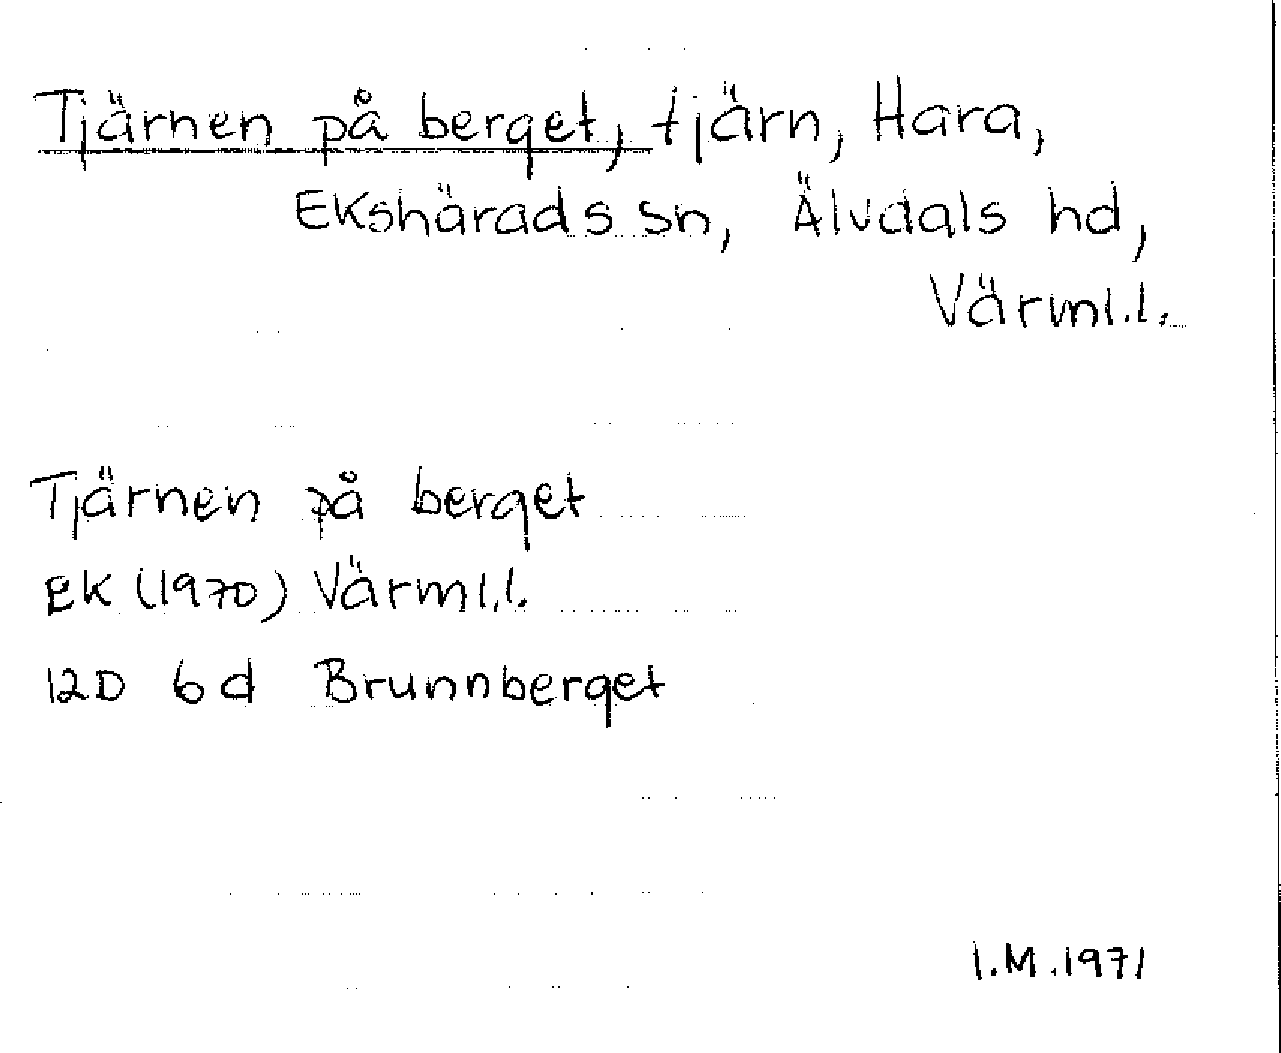 Tjärnen på berget, tjärn, Hara,
Ekshärads sn, Älvdals hd,
Värml.l.
Tjärnen på berget
EK (1970) Värml.l.
12D 6d Brunnberget
I.M.1971